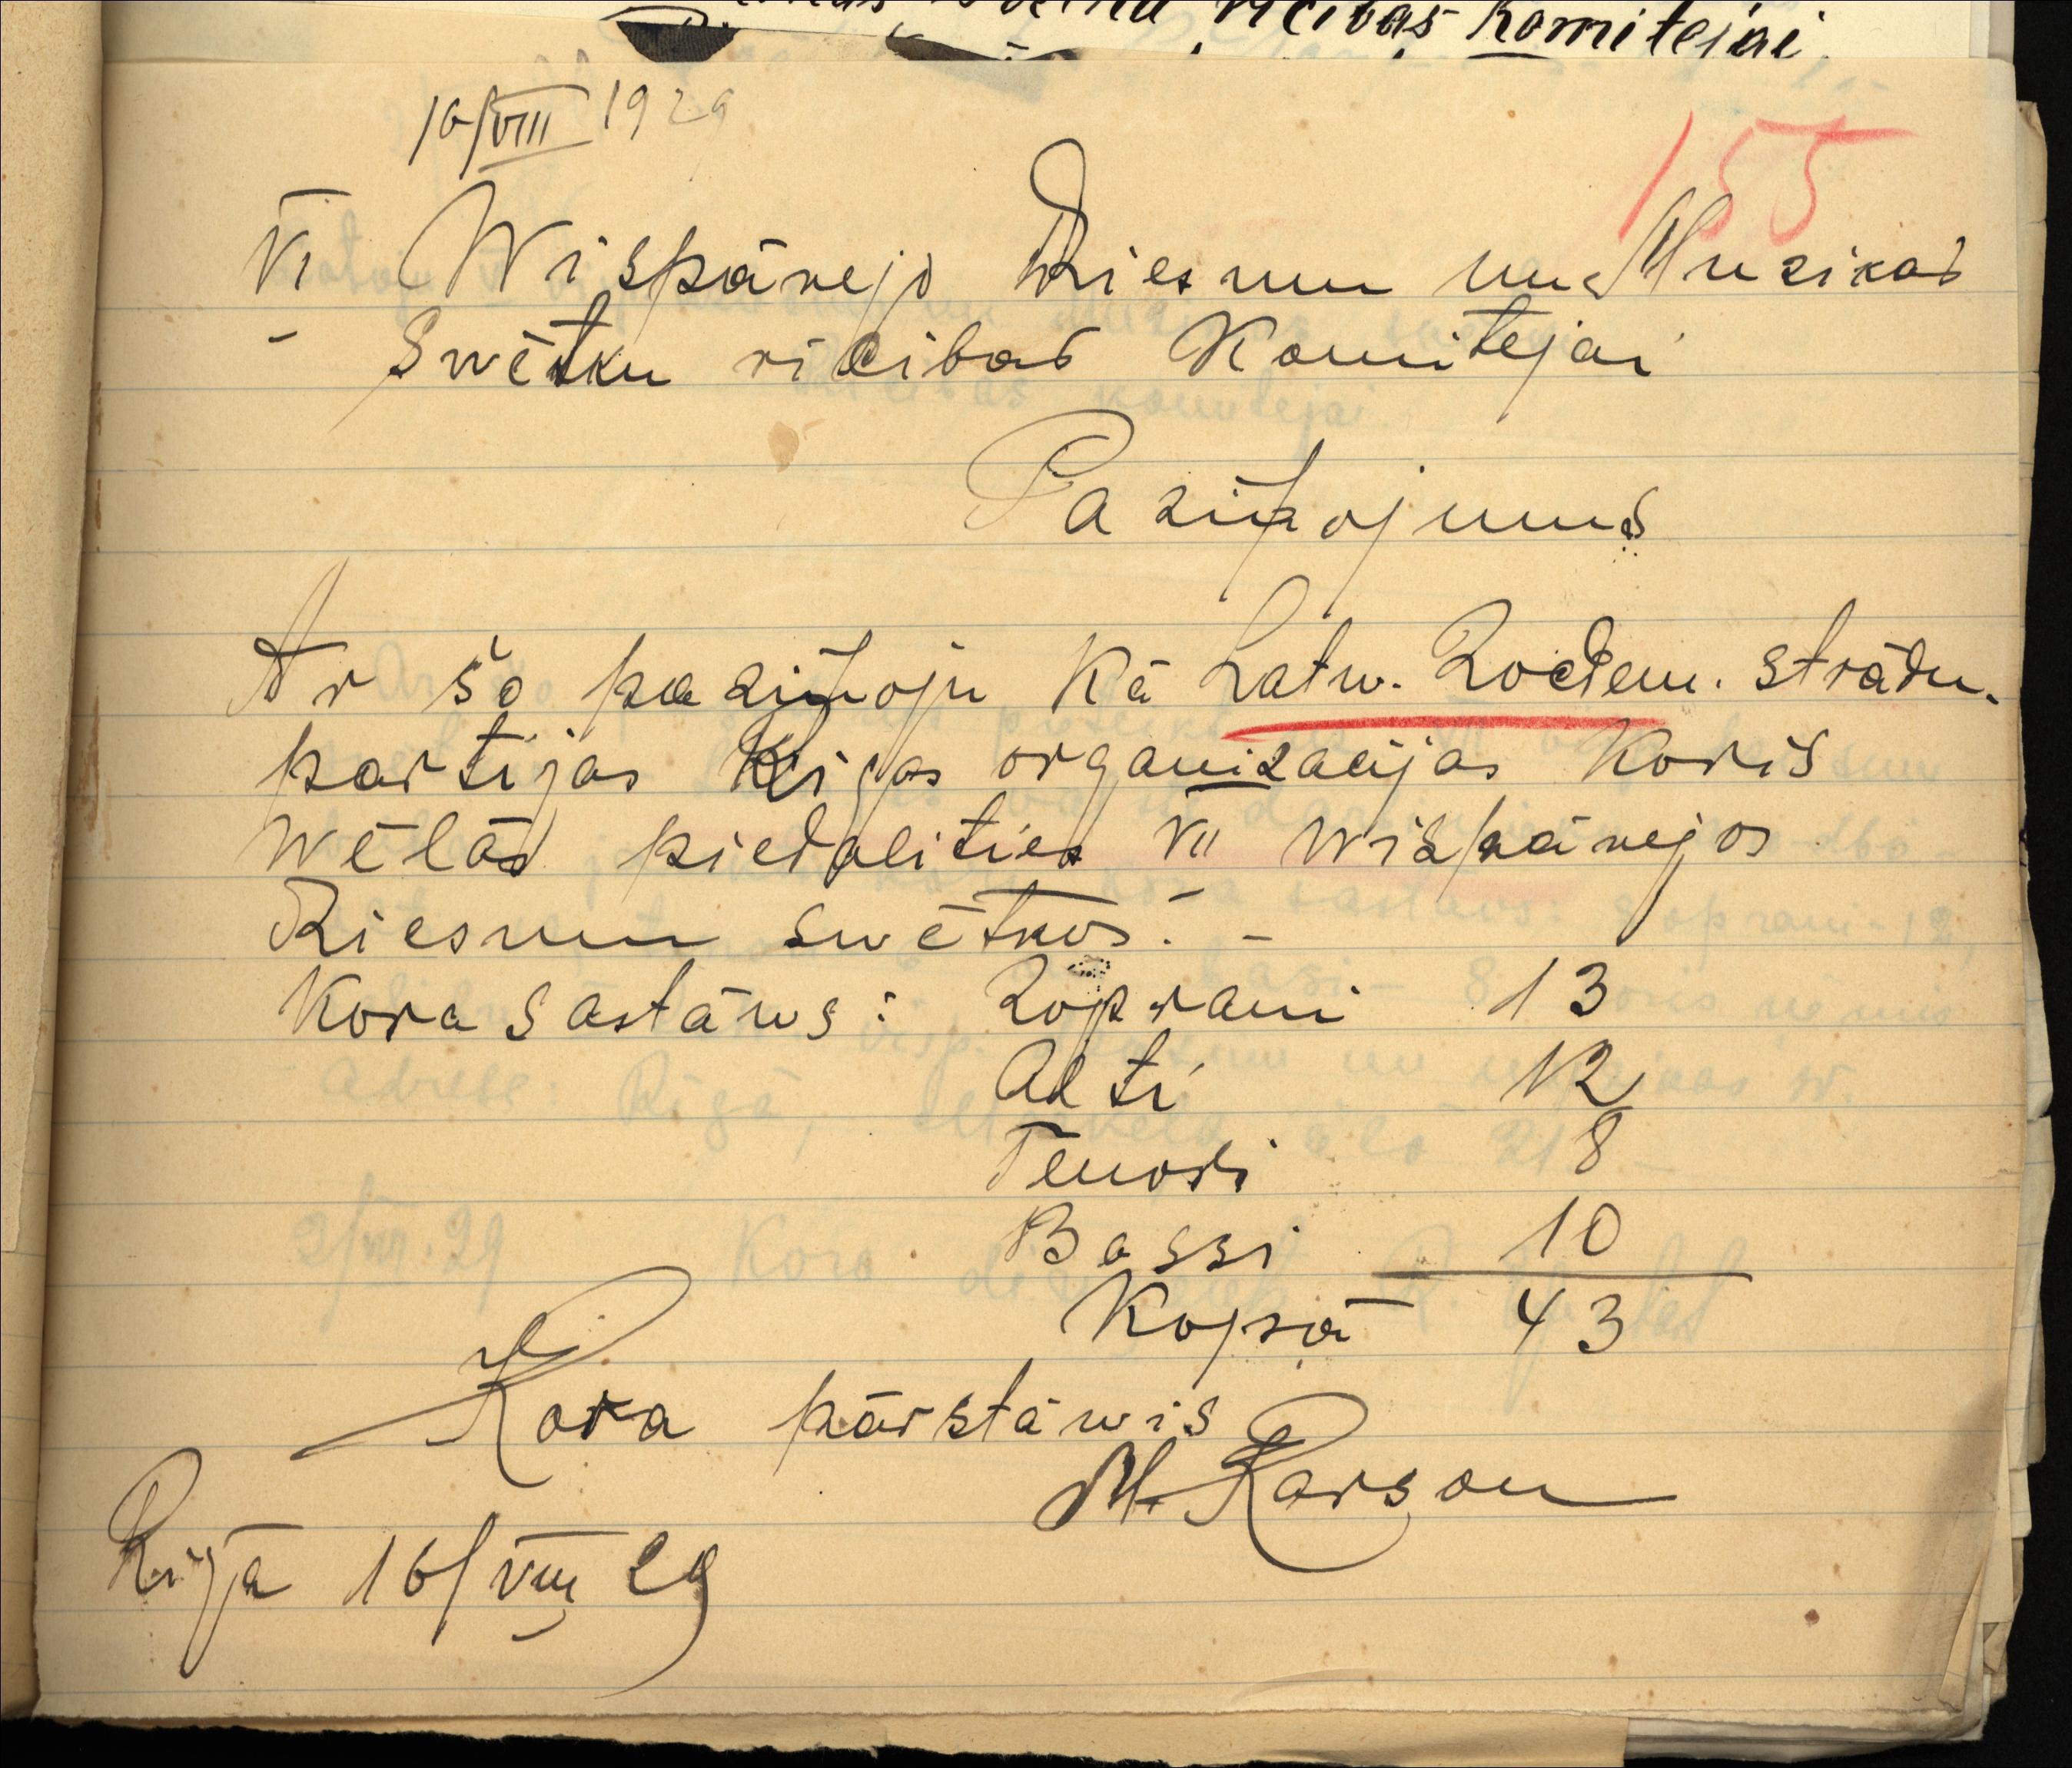 rīcības Komitejai
16/VIII 1929
155
VI Wispārejo Dziesmu un Muzikas
Swētku rīcibas Komitejai
Paziņojums
Ar šo paziņoju Kā Latw. Zocdem. strādn.
partijas Rīgas organizacijas Koris
wēlās piedalities VII wispārejos
Dziesmu swētkos. –
Kora sastāws: Soprani 13
Alti 12
Tenori 8
Bassi 10
Kopsā 43
Kora pārstāwis
M. Karson
Rīgā 16/VIII 29